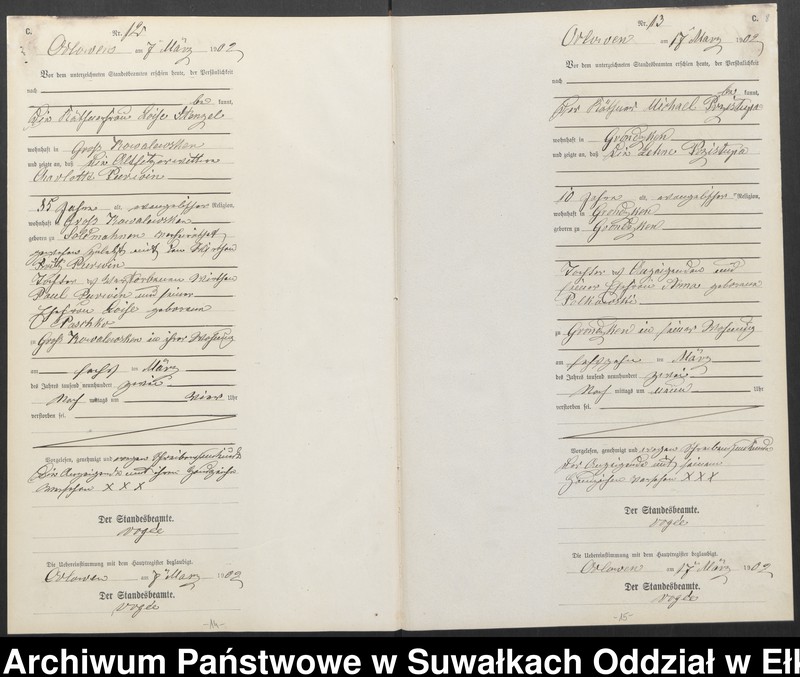 C.
Nr. 12
Orlowen am 7 März 1902
Vor dem unterzeichneten Standesbeamten erschien heute, der Persönlichkeit
nach
be kannt,
Die Käthnerfrau Loise Stenzel
wohnhaft in Groß Kowalewsken
und zeigte an, daß die Altsitzerwittwe
Charlotte Purwin
85 Jahre alt, evangelischer Religion,
wohnhaft in Groß Kowalewsken
geboren zu Soldmahnen verheirathet
gewesen zuletzt mit dem Wirthen
Fritz Purwin
Tochter verstorbenen Wirthen
Paul Purwin und seiner
Ehefrau Loise geborenen
Paschko
zu Groß Kowalewsken in ihrer Wohnung
am sechs ten März
des Jahres tausend neunhundert zwei
Nach mittags um vier Uhr
verstorben sei.
Vorgelesen, genehmigt und wegen Schreibensunkunde
Die Anzeigende mit ihrem Handzeichen
versehen X X X
Der Standesbeamte.
Vogée
Die Uebereinstimmung mit dem Hauptregister beglaubigt.
Orlowen am 7 März 1902
Der Standesbeamte.
Vogée
-14-
C.
Nr. 13
Orlowen am 17 März 1902
Vor dem unterzeichneten Standesbeamten erschien heute, der Persönlichkeit
nach
be kannt,
Der Käthner Michael Przistupa
wohnhaft in Gronsken
und zeigte an, daß die Przistupa
10 Jahre alt, evangelischer Religion,
wohnhaft in Gronsken
geboren zu Gronsken
Tochter Anzeigenden und
seiner Ehefrau Anna geborenen
zu Gronsken in seiner Wohnung
am sechszehn ten März
des Jahres tausend neunhundert zwei
Nach mittags um neun Uhr
verstorben sei.
Vorgelesen, genehmigt und wegen Schreibensunkunde
Der Anzeigende mit seinem
Handzeichen versehen X X X
Der Standesbeamte.
Vogée
Die Uebereinstimmung mit dem Hauptregister beglaubigt.
Orlowen am 17 März 1902
Der Standesbeamte.
Vogée
-15-
Archiwum Państwowe w Suwałkach Oddział w Ełk